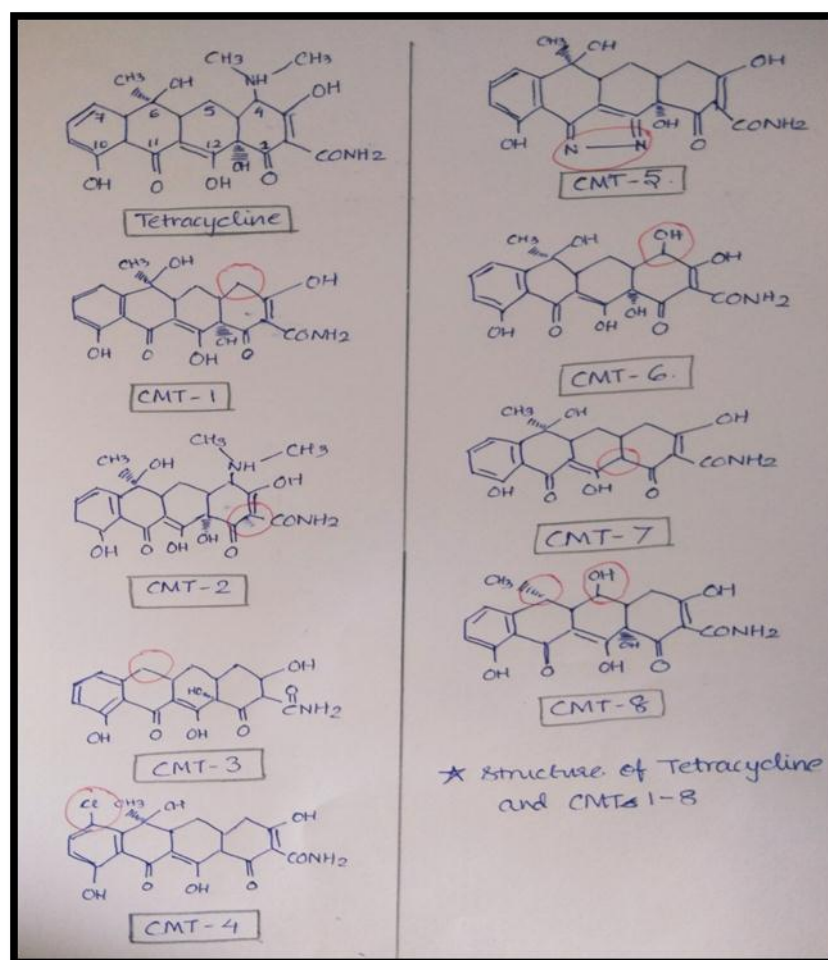 CH3 CH3
CH3 OH NH
OH
7 6 5 4
10 11 12 2
CONH2
OH O OH OH O
Tetracycline
CH3 OH
OH
CONH2
OH O OH OH O
CMT-1
CH3 CH3
CH3 OH NH
OH
CONH2
OH O OH OH O
CMT-2
OH
HO
O
CNH2
OH O OH O
CMT-3
Cl CH3 OH
OH
CONH2
OH O OH O
CMT-4
CH3 OH
OH
OH
CONH2
OH N N O
CMT-5.
OH
CH3 OH
OH
CONH2
OH O OH OH O
CMT-6.
CH3 OH
OH
CONH2
OH O OH O
CMT-7
CH3 OH
OH
CONH2
OH O OH OH O
CMT-8
★ Structure of Tetracycline
and CMTs 1-8